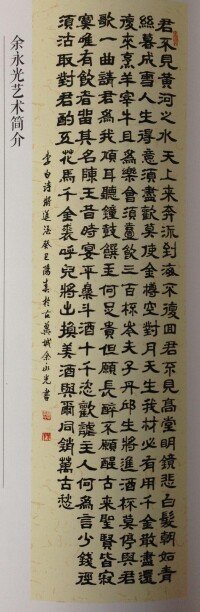 君不見黃河之水天上來奔流到海不復回君不見高堂明鏡悲白髮朝如青
絲暮成雪人生得意須盡歡莫使金樽空對月天生我材必有用千金散盡還
復來烹羊宰牛且為樂會須一飲三百杯岑夫子丹丘生將進酒杯莫停與君
歌一曲請君為我傾耳聽鐘鼓饌玉何足貴但願長醉不願醒古來聖賢皆寂
寞唯有飲者留其名陳王昔時宴平樂斗酒十千恣歡謔主人何為言少錢徑
須沽取對君酌五花馬千金裘呼兒將出換美酒與爾同銷萬古愁
李白詩將進酒癸巳陽春於古冀城余永光書
余永光艺术简介